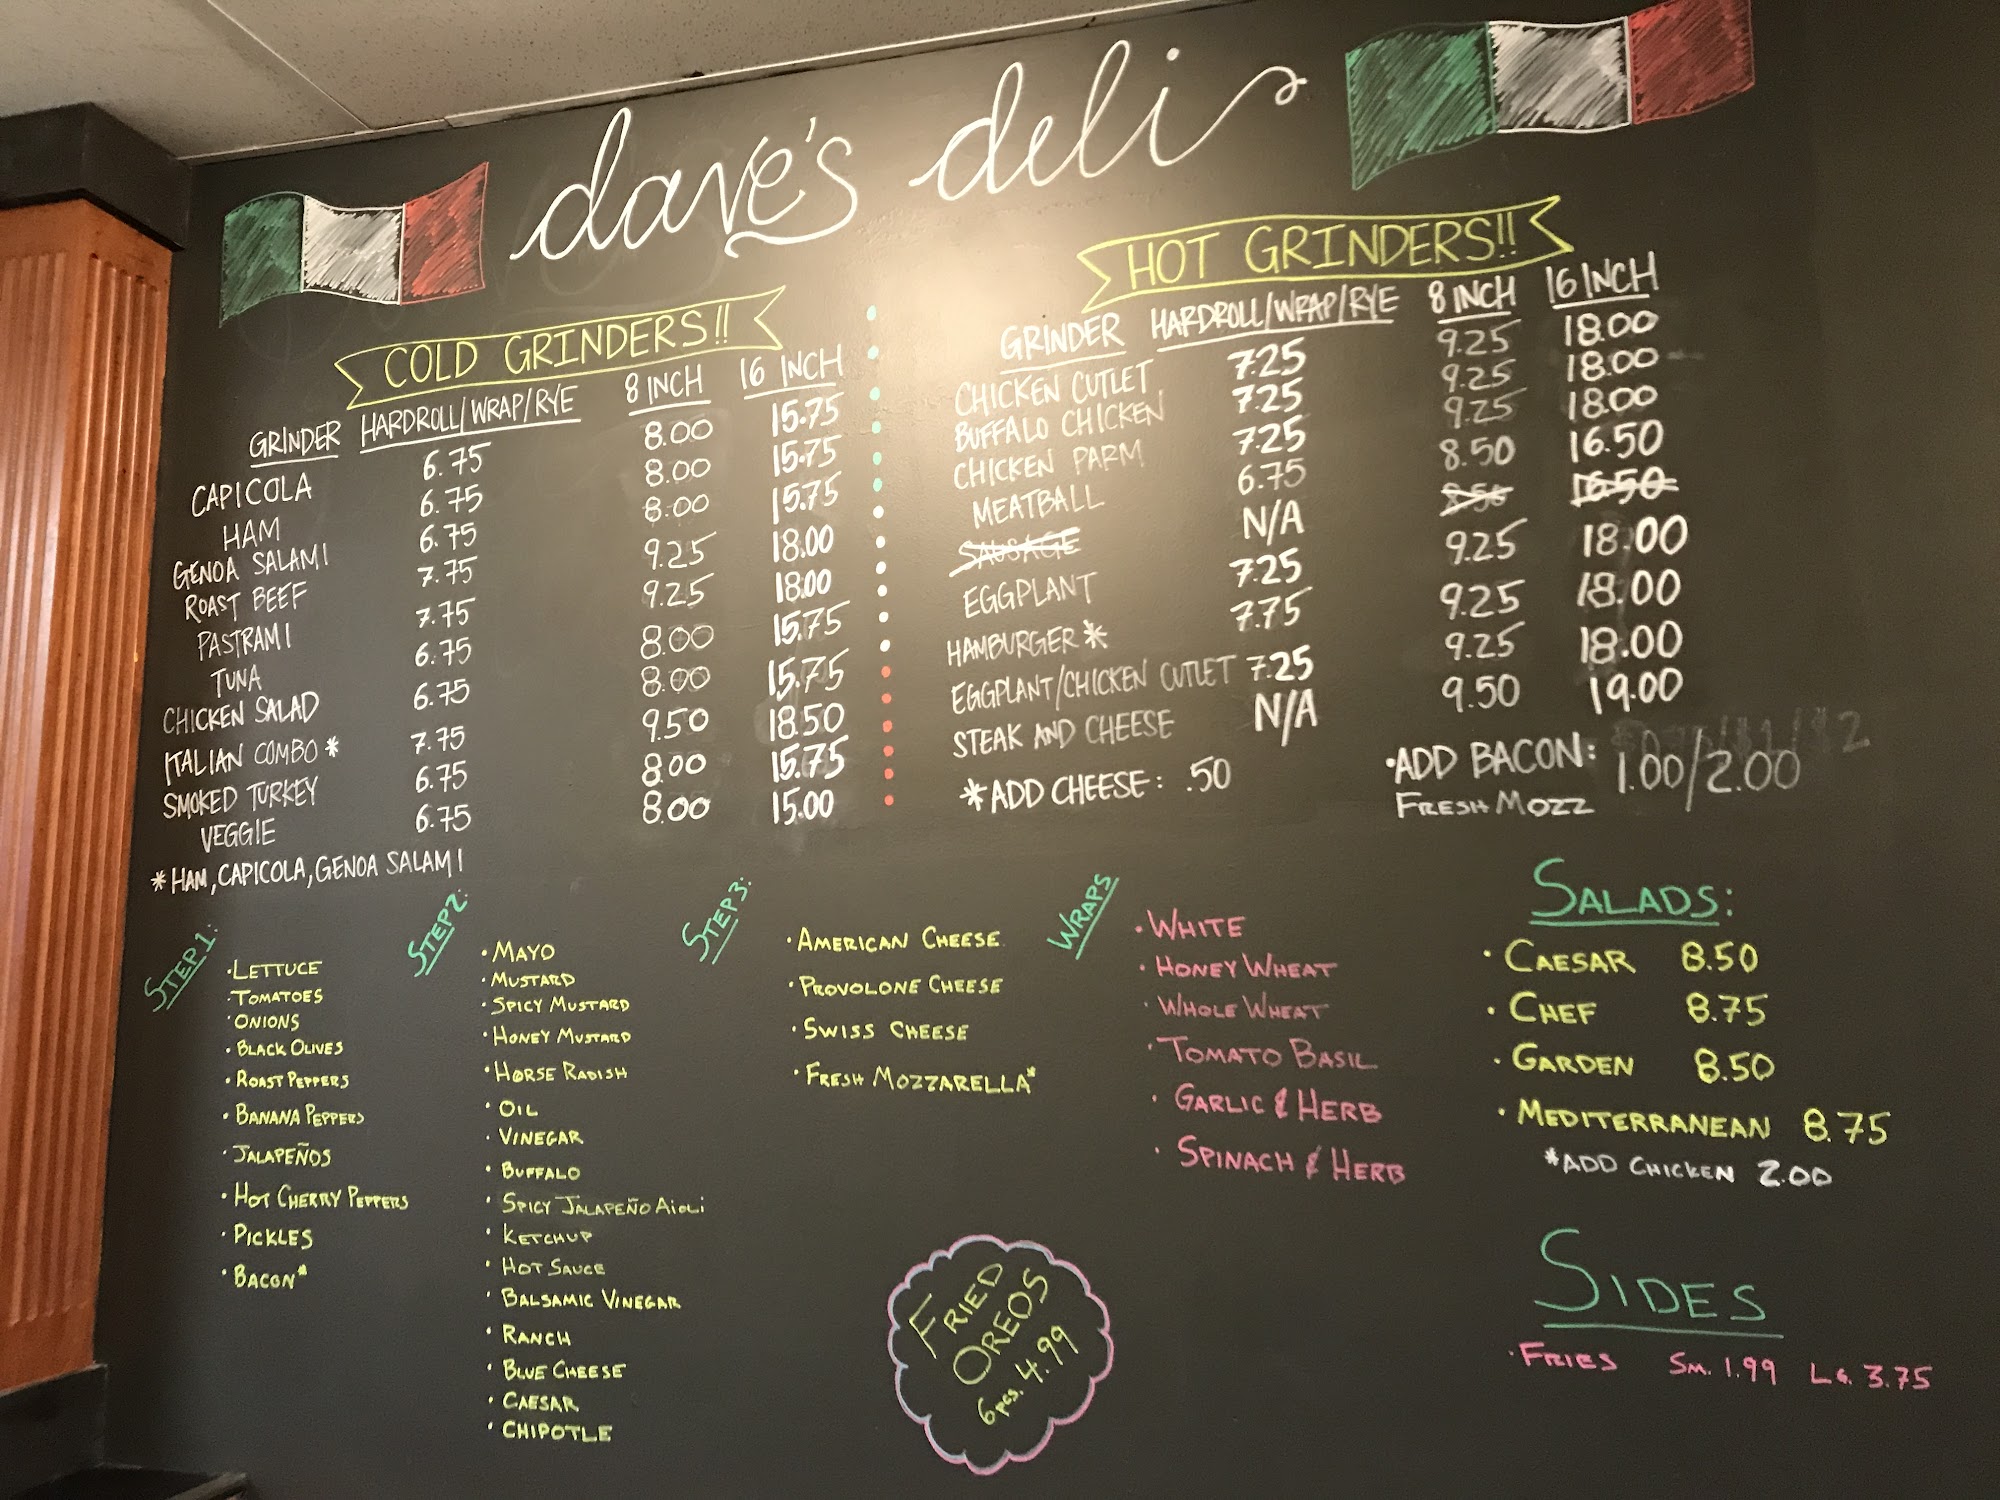 dave's deli
COLD GRINDERS!!
GRINDER HARDROLL/WRAP/RYE 8 INCH 16 INCH
CAPICOLA 6.75 8.00 15.75
HAM 6.75 8.00 15.75
GENOA SALAMI 6.75 8.00 15.75
ROAST BEEF 7.75 9.25 18.00
PASTRAMI 7.75 9.25 18.00
TUNA 6.75 8.00 15.75
CHICKEN SALAD 6.75 8.00 15.75
ITALIAN COMBO* 7.75 9.50 18.50
SMOKED TURKEY 6.75 8.00 15.75
VEGGIE 6.75 8.00 15.00
*HAM, CAPICOLA, GENOA SALAMI
HOT GRINDERS!!
GRINDER HARDROLL/WRAP/RYE 8 INCH 16 INCH
CHICKEN CUTLET 7.25 9.25 18.00
BUFFALO CHICKEN 7.25 9.25 18.00
CHICKEN PARM 7.25 9.25 18.00
MEATBALL 6.75 8.50 16.50
SAUSAGE N/A 8.50 16.50
EGGPLANT 7.25 9.25 18.00
HAMBURGER* 7.75 9.25 18.00
EGGPLANT/CHICKEN CUTLET 7.25 9.25 18.00
STEAK AND CHEESE N/A 9.50 19.00
*ADD CHEESE: .50
·ADD BACON: 1.00/2.00
FRESH MOZZ
STEP 1:
·LETTUCE
·TOMATOES
·ONIONS
·BLACK OLIVES
·ROAST PEPPERS
·BANANA PEPPERS
·JALAPEÑOS
·HOT CHERRY PEPPERS
·PICKLES
·BACON*
STEP 2:
·MAYO
·MUSTARD
·SPICY MUSTARD
·HONEY MUSTARD
·HORSE RADISH
·OIL
·VINEGAR
·BUFFALO
·SPICY JALAPEÑO AIOLI
·KETCHUP
·HOT SAUCE
·BALSAMIC VINEGAR
·RANCH
·BLUE CHEESE
·CAESAR
·CHIPOTLE
STEP 3:
·AMERICAN CHEESE
·PROVOLONE CHEESE
·SWISS CHEESE
·FRESH MOZZARELLA*
WRAPS
·WHITE
·HONEY WHEAT
·WHOLE WHEAT
·TOMATO BASIL
·GARLIC & HERB
·SPINACH & HERB
SALADS:
·CAESAR 8.50
·CHEF 8.75
·GARDEN 8.50
·MEDITERRANEAN 8.75
*ADD CHICKEN 2.00
FRIED
OREOS
6pcs. 4.99
SIDES
·FRIES SM. 1.99 LG. 3.75